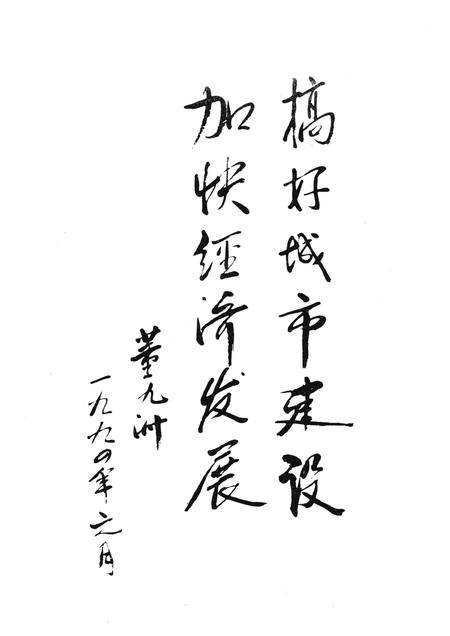 搞好城市建设
加快経济发展
董九洲
一九九四年元月